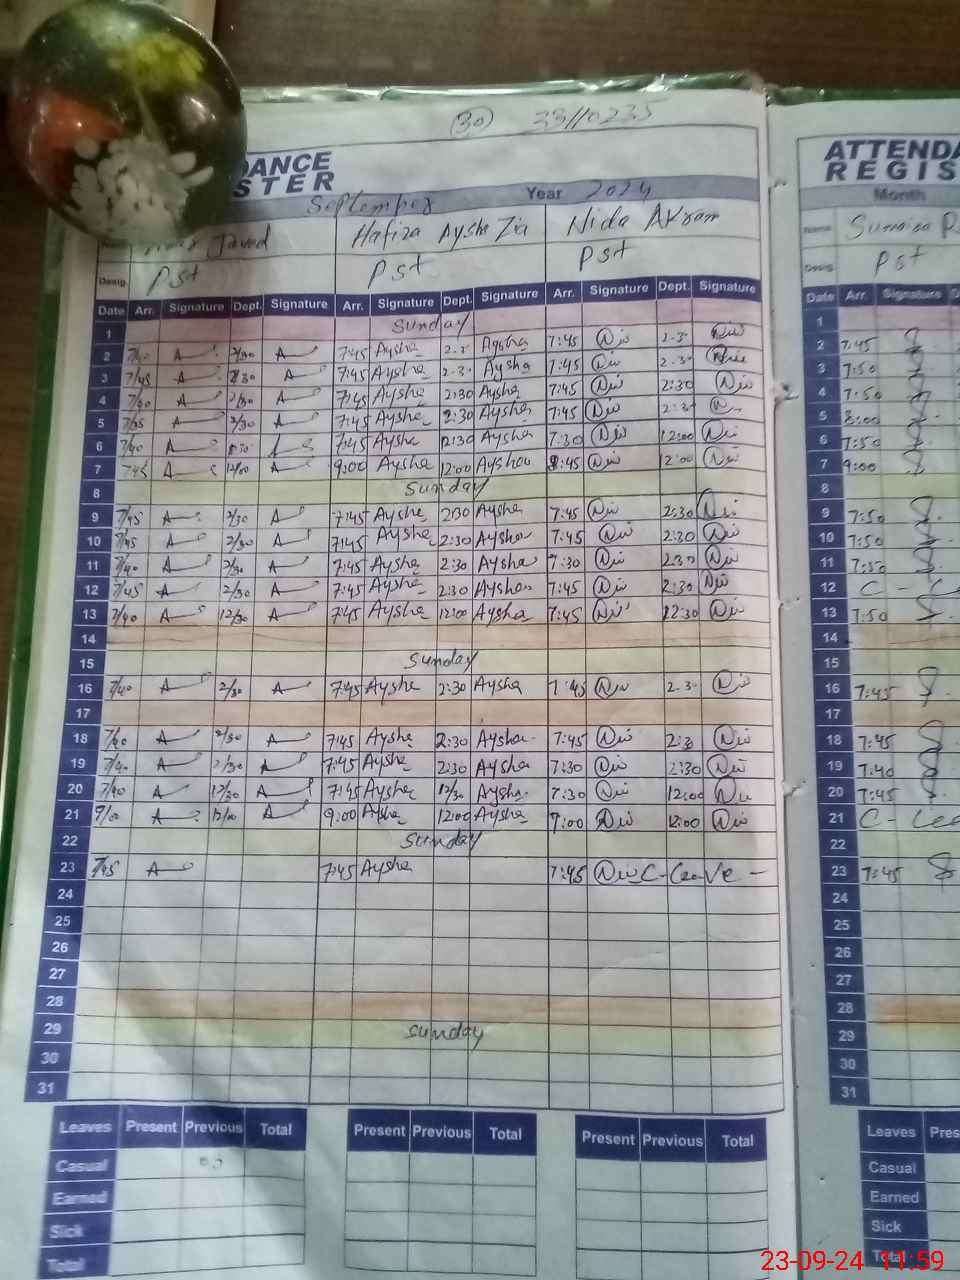 (30) 33110235
DANCE
STER
September Year 2024
Javed Hafiza Aysha Zia Nida Akram
Desig. Pst Pst Pst
Date Arr. Signature Dept. Signature Arr. Signature Dept. Signature Arr. Signature Dept. Signature
1 Sunday
2 7/40 2/30 7:45 Aysha 2:3 Aysha 7:45 2:3
3 7/45 2/30 7:45 Aysha 2:3 Aysha 7:45 2:3
4 7/40 2/30 7:45 Aysha 2:30 Aysha 7:45 2:30
5 2/30 7:45 Aysha 2:30 Aysha 7:45 2:3
6 7/40 7:45 Aysha 12:30 Aysha 7:30 12:00
7 7:45 12/00 9:00 Aysha 12:00 Aysha 8:45 12:00
8 Sunday
9 7/45 2/30 7:45 Aysha 2:30 Aysha 7:45 2:30
10 7/45 2/30 7:45 Aysha 2:30 Aysha 7:45 2:30
11 7/40 2/30 7:45 Aysha 2:30 Aysha 7:30 2:30
12 7/45 2/30 7:45 Aysha 2:30 Aysha 7:45 2:30
13 7/40 12/30 7:45 Aysha 12:00 Aysha 7:45 12:30
14
15 Sunday
16 7/40 2/30 7:45 Aysha 2:30 Aysha 7:45 2:3
17
18 7/40 2/30 7:45 Aysha 2:30 Aysha 7:45 2:3
19 7/40 2/30 7:45 Aysha 2:30 Aysha 7:30 2:30
20 7/40 12/30 7:45 Aysha 12/30 Aysha 7:30 12:00
21 9/00 12/00 9:00 Aysha 12:00 Aysha 9:00 12:00
22 Sunday
23 7/45 7:45 Aysha 7:45 C-Leave -
24
25
26
27
28
29 Sunday
30
31
Leaves Present Previous Total Present Previous Total Present Previous Total
Casual
Earned
Sick
Total
ATTENDA
REGIS
Month
Name
Desig. Pst
Date Arr. Signature
1
2 7:45
3 7:50
4 7:50
5 8:00
6 7:50
7 9:00
8
9 7:50
10 7:50
11 7:50
12 C -
13 7:50
14
15
16 7:45
17
18 7:45
19 7:40
20 7:45
21 C - Lea
22
23 7:45
24
25
26
27
28
29
30
31
Leaves Pres
Casual
Earned
Sick
Total
23-09-24 11:59